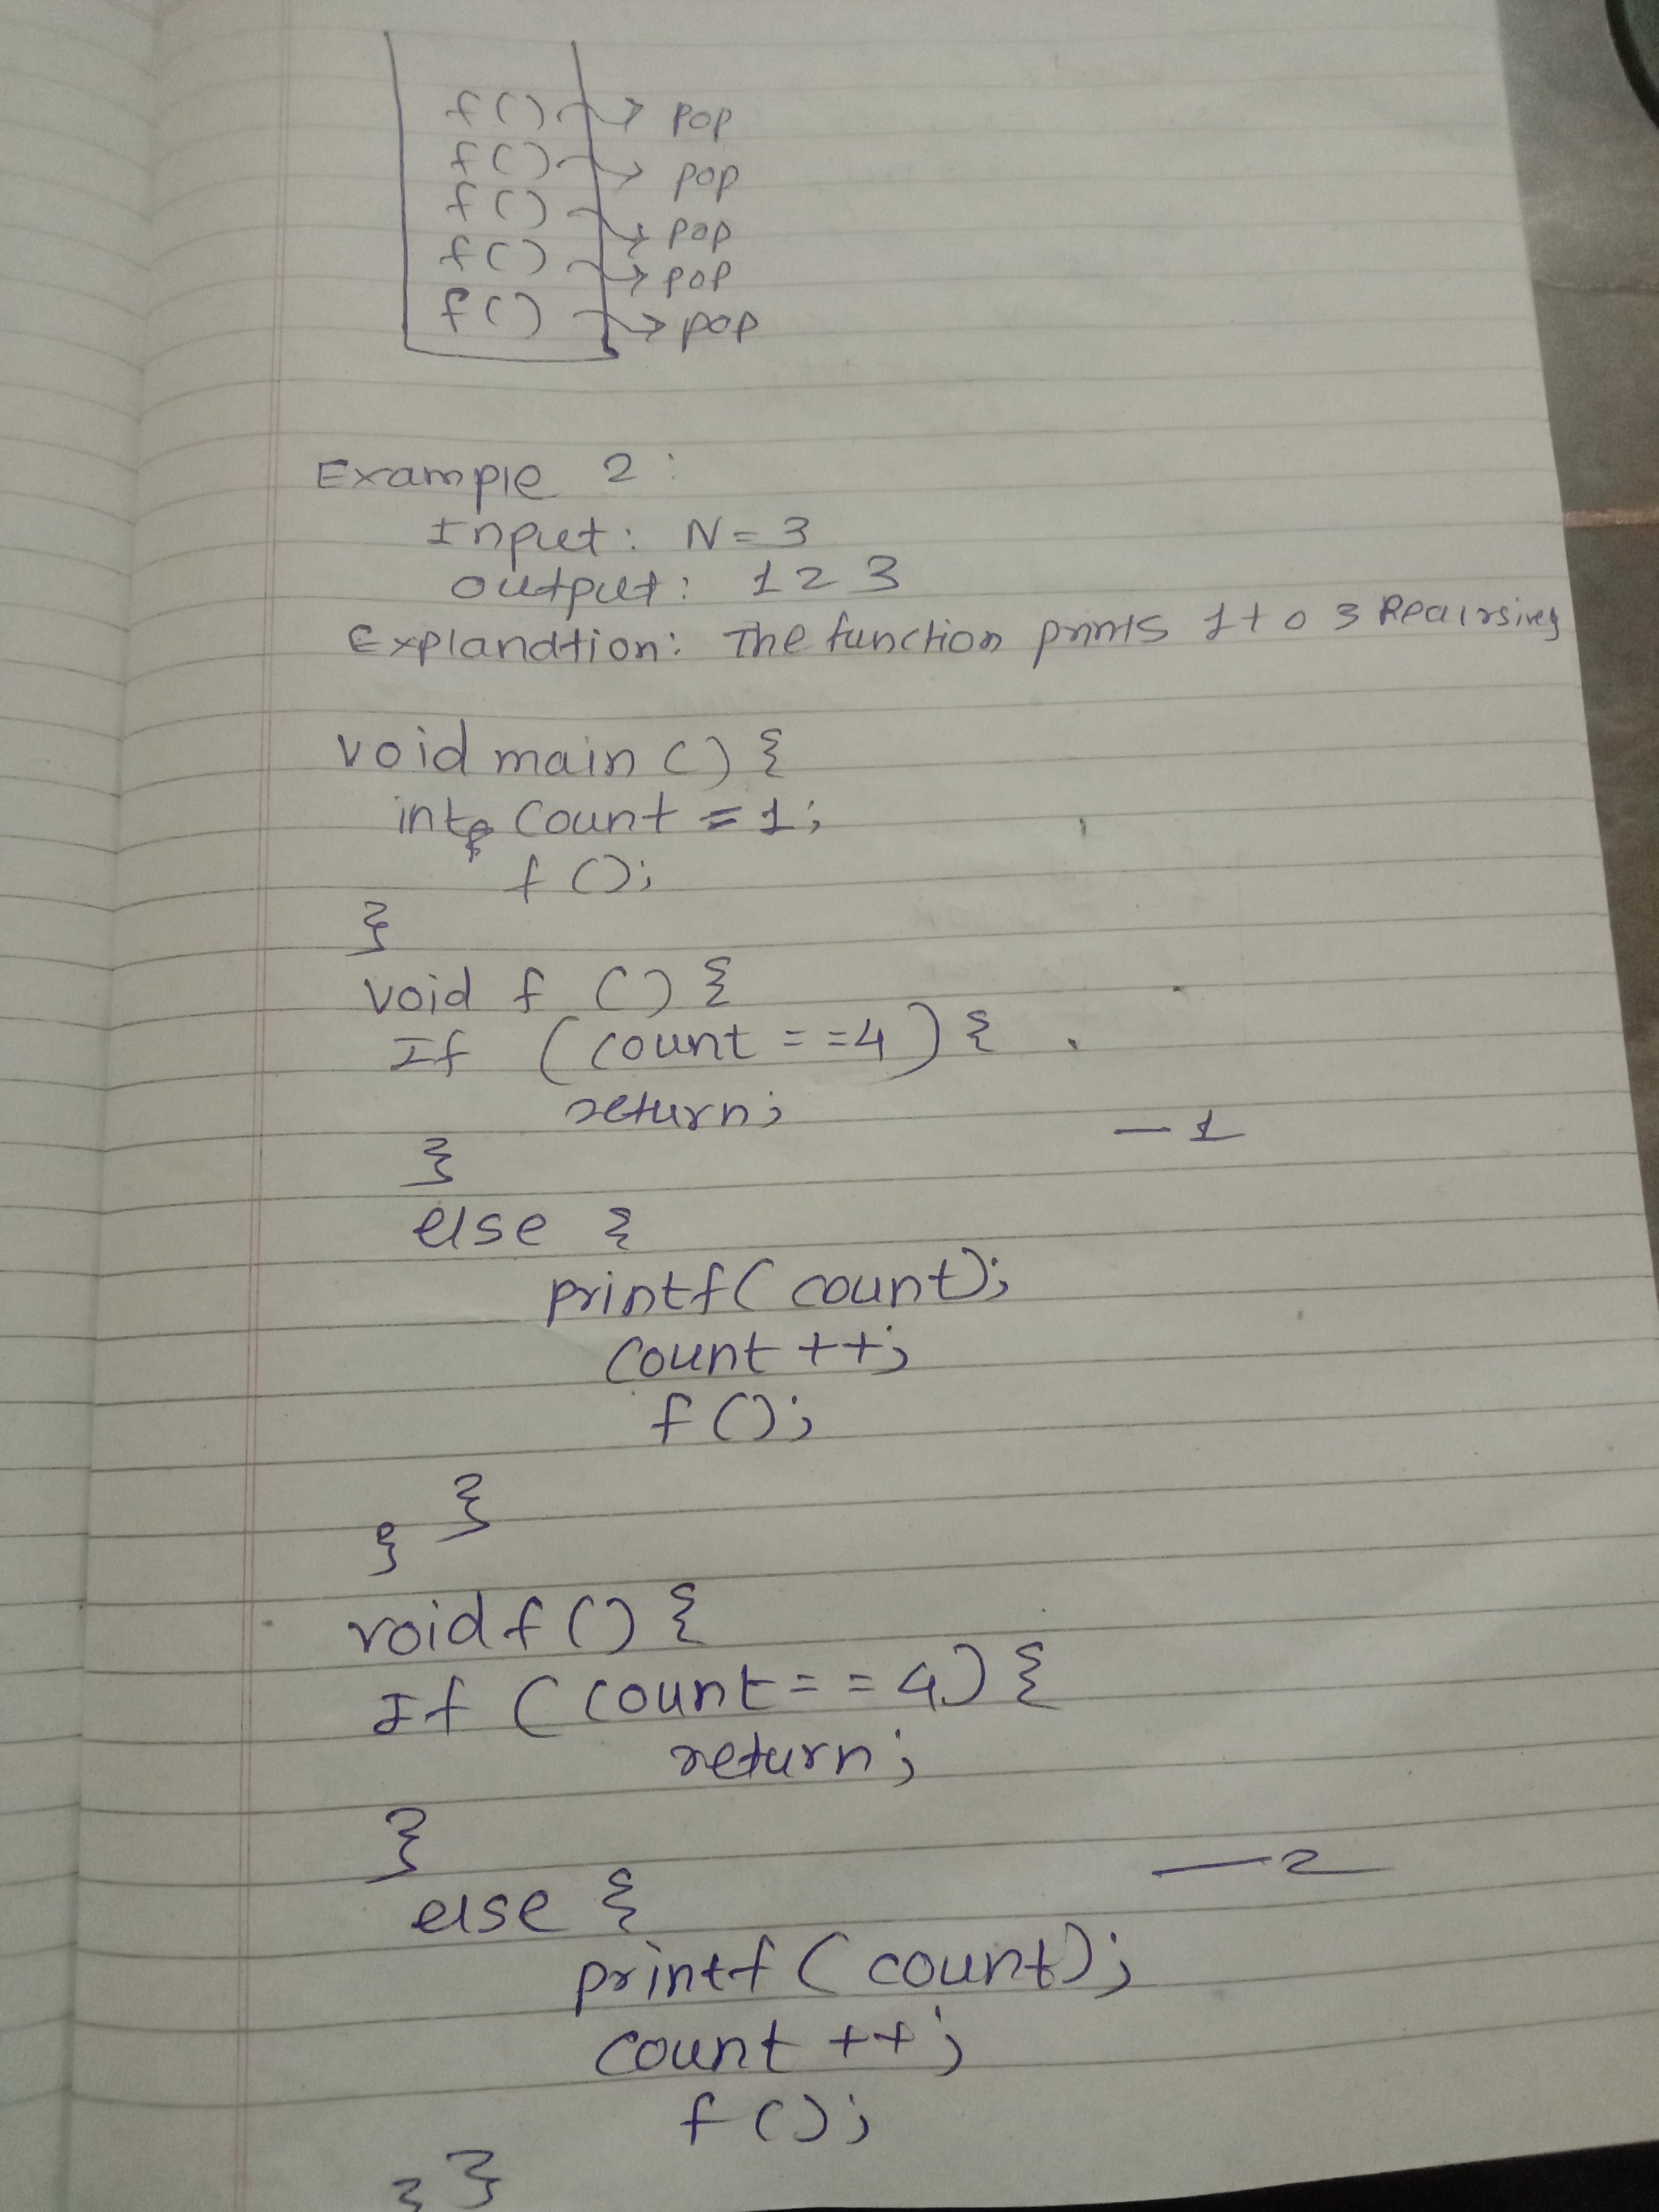 f() → pop
f() → pop
f() → pop
f() → pop
f() → pop
Example 2:
Input: N = 3
output: 1 2 3
Explandtion: The function prints 1 to 3
void main () {
int count = 1;
f ();
}
void f () {
If (count = =4) {
return;
— 1
}
else {
printf( count);
count ++;
f ();
}
}
void f () {
If ( count = = 4) {
return;
}
— 2
else {
printf ( count);
count ++;
f ();
}
}